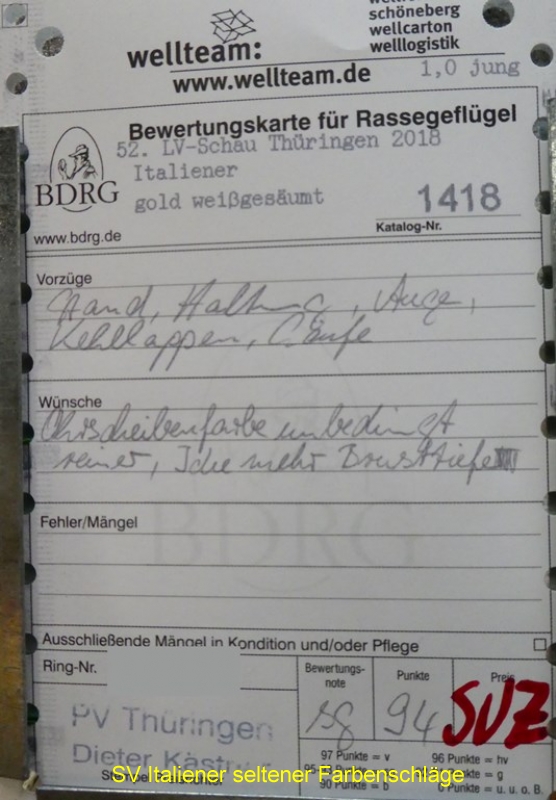 schöneberg
wellcarton
welllogistik
wellteam:
www.wellteam.de
1,0 jung
Bewertungskarte für Rassegeflügel
52. LV-Schau Thüringen 2018
Italiener
BDRG
gold weißgesäumt
1418
Katalog-Nr.
www.bdrg.de
Vorzüge
Stand, Haltung, Auge,
Kehllappen, Läufe
Wünsche
Ohrscheibenfarbe unbedingt
reiner, mehr Brusttiefe
Fehler/Mängel
BDRG
Ausschließende Mängel in Kondition und/oder Pflege
Ring-Nr.
Bewertungs-
note
Punkte
Preis
sg
94
SVZ
PV Thüringen
Dieter
97 Punkte = v
96 Punkte = hv
Punkte = g
90 Punkte = b
Punkte = u. u. o. B.
SV Italiener seltener Farbenschläge